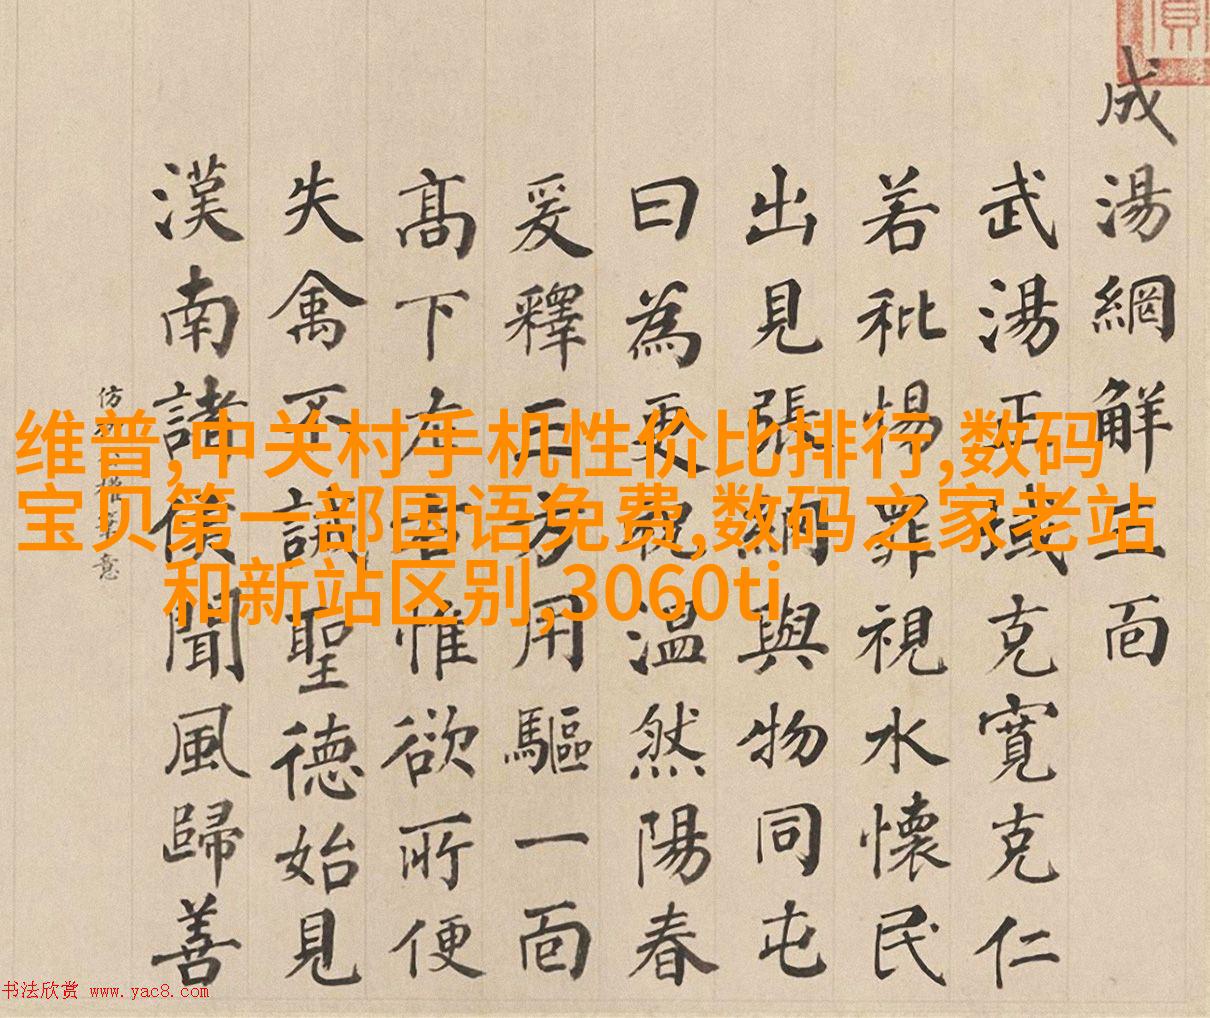 成湯網解三面
武湯正域克寬克仁
若秕惕罪視水懷民
出見張網與物同屯
曰為更祝温然陽春
爰釋三方用驅一面
髙下左右惟欲所便
失禽不誡聖德始見
漢南諸侯聞風歸善
仿意
维普,中关村手机性价比排行,数码
宝贝第一部国语免费,数码之家老站
和新站区别,3060ti
书法欣赏 www.yac8.com